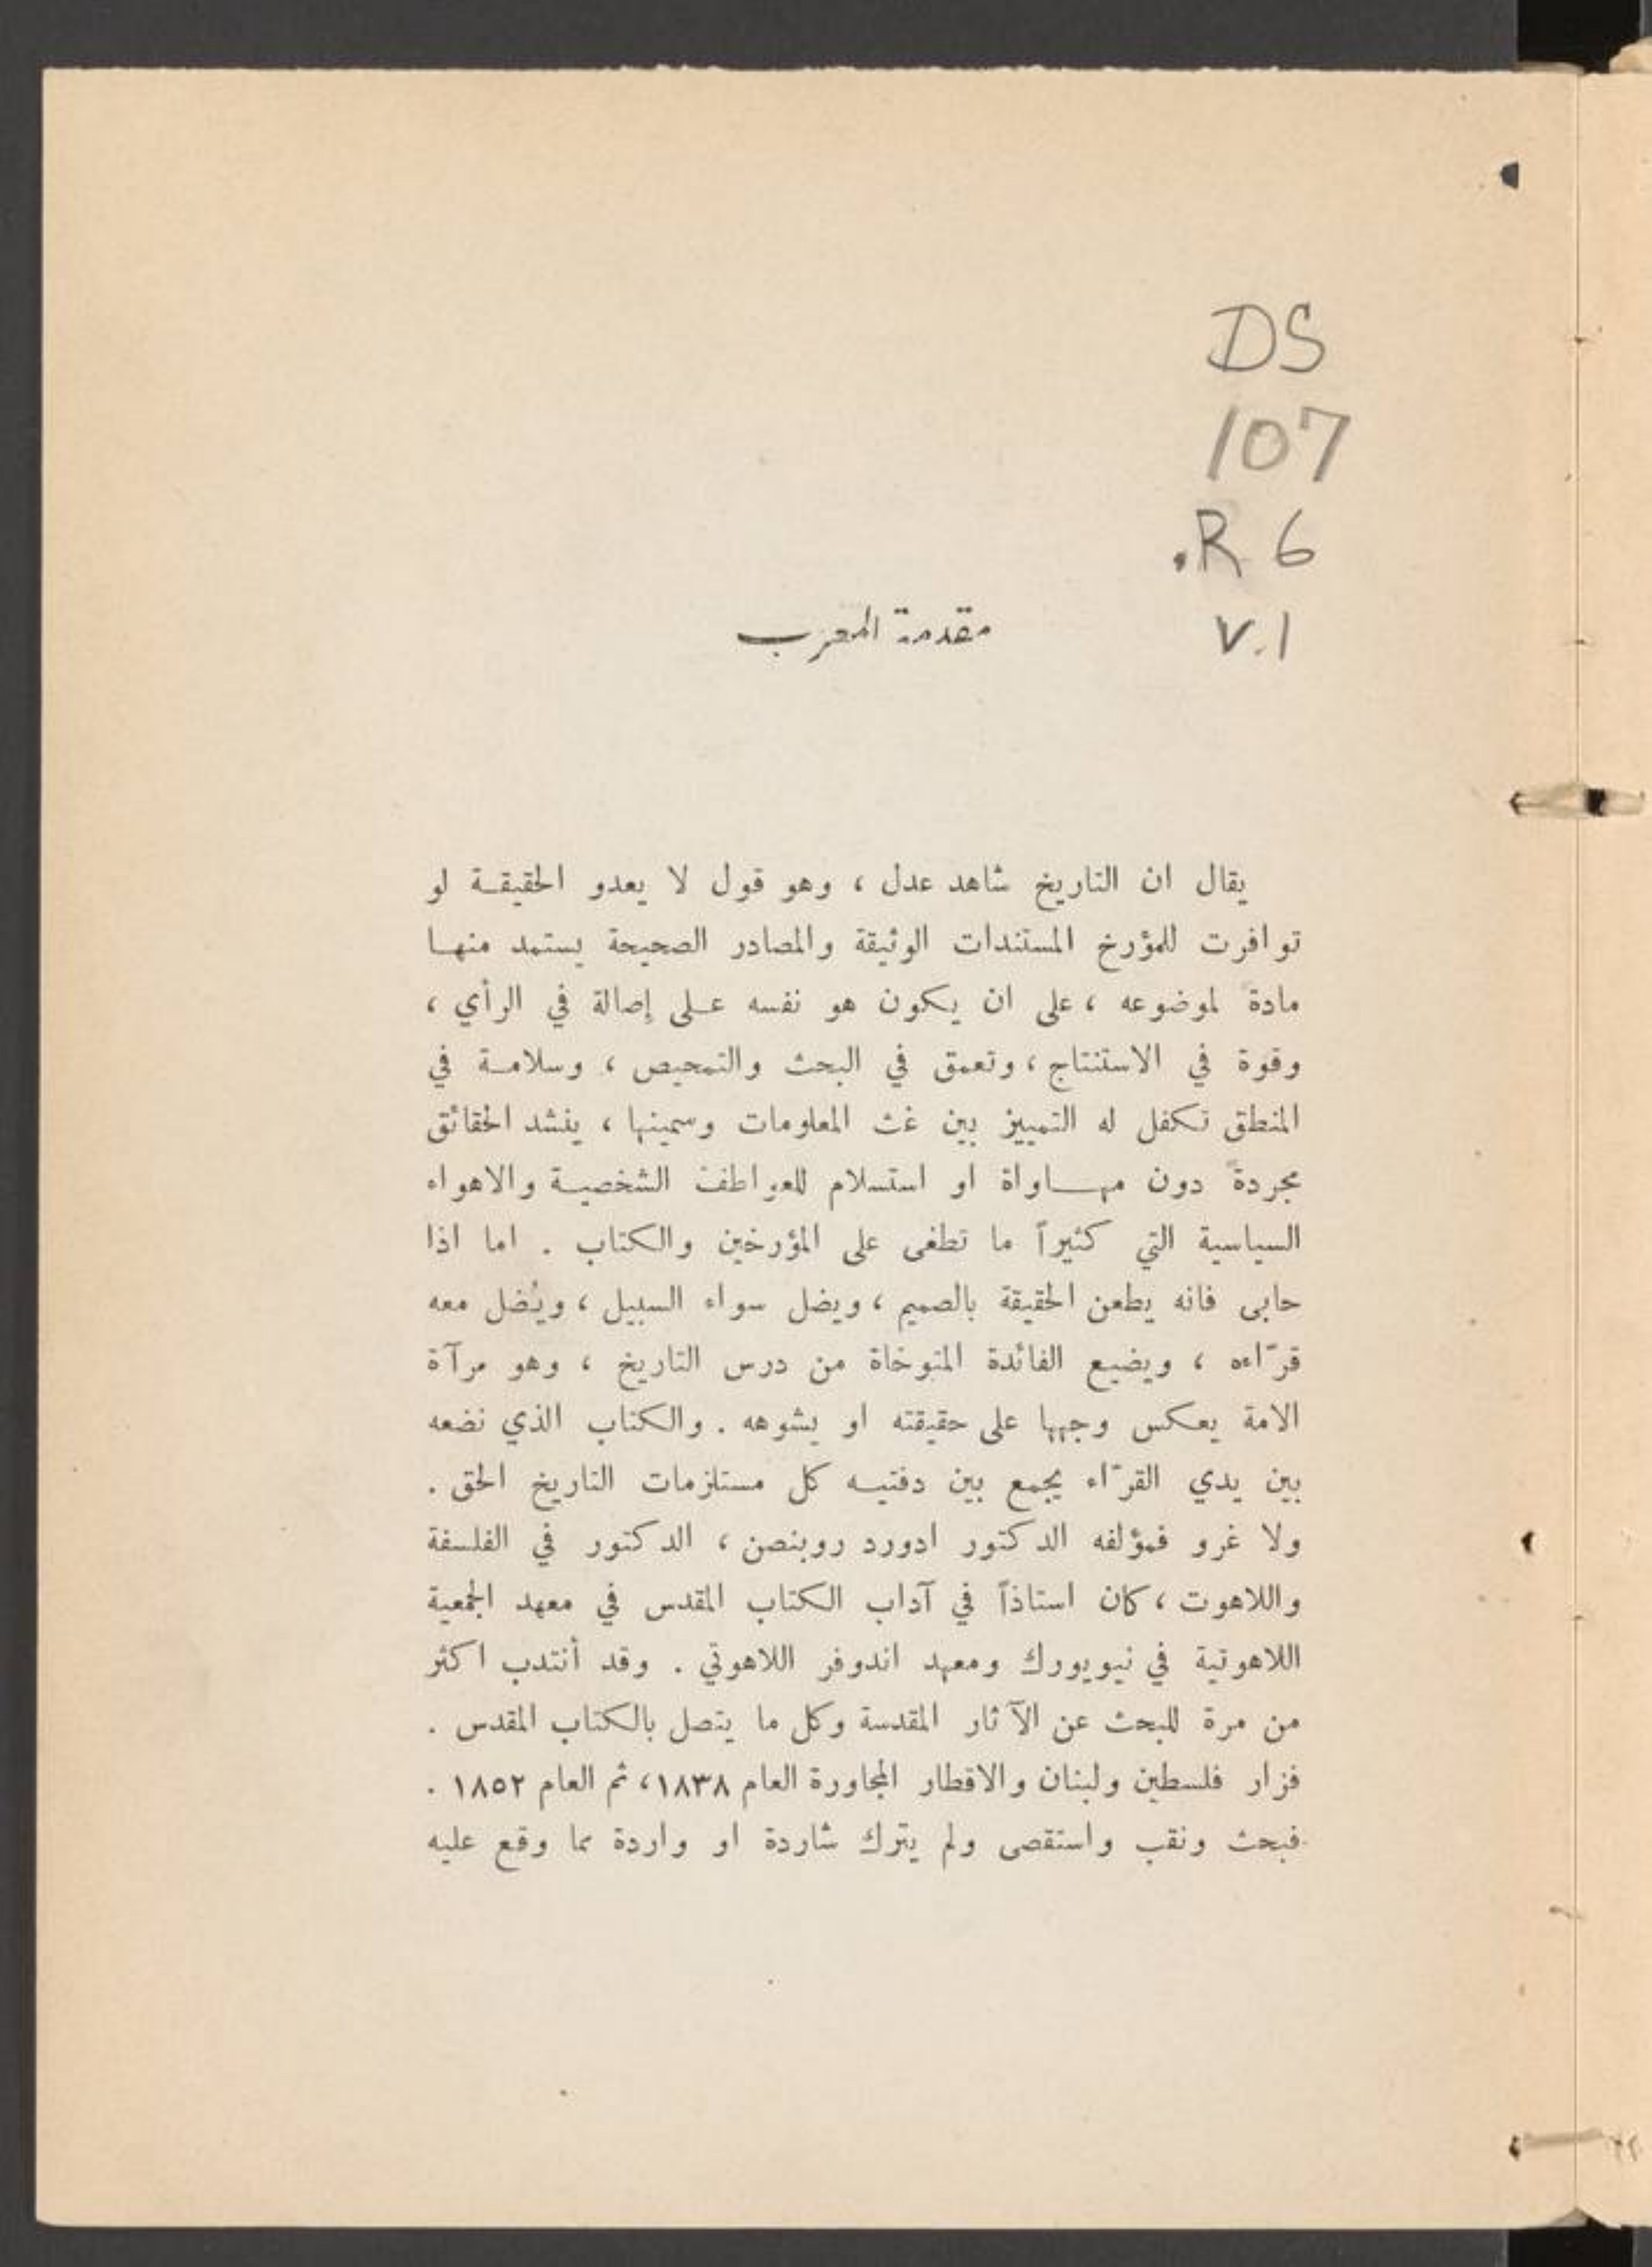 DS
107
.R 6
v.1
مقدمة المعرب
يقال ان التاريخ شاهد عدل ، وهو قول لا يعدو الحقيقة لو
توافرت للمؤرخ المستندات الوثيقة والمصادر الصحيحة يستمد منها
مادة لموضوعه ، على ان يكون هو نفسه على إصالة في الرأي ،
وقوة في الاستنتاج ، وتعمق في البحث والتمحيص ، وسلامة في
المنطق تكفل له التمييز بين غث المعلومات وسمينها ، ينشد الحقائق
مجردة دون مهاواة او استسلام للعواطف الشخصية والاهواء
السياسية التي كثيراً ما تطغى على المؤرخين والكتاب . اما اذا
حابى فانه يطعن الحقيقة بالصميم ، ويضل سواء السبيل ، ويُضل معه
قرّاءه ، ويضيع الفائدة المتوخاة من درس التاريخ ، وهو مرآة
الامة يعكس وجهها على حقيقته او يشوهه . والكتاب الذي نضعه
بين يدي القرّاء يجمع بين دفتيه كل مستلزمات التاريخ الحق .
ولا غرو فمؤلفه الدكتور ادورد روبنصن ، الدكتور في الفلسفة
واللاهوت ، كان استاذاً في آداب الكتاب المقدس في معهد الجمعية
اللاهوتية في نيويورك ومعهد اندوفر اللاهوتي . وقد أنتدب اكثر
من مرة للبحث عن الآثار المقدسة وكل ما يتصل بالكتاب المقدس .
فزار فلسطين ولبنان والاقطار المجاورة العام ١٨٣٨ ، ثم العام ١٨٥٢ .
فبحث ونقب واستقصى ولم يترك شاردة او واردة مما وقع عليه